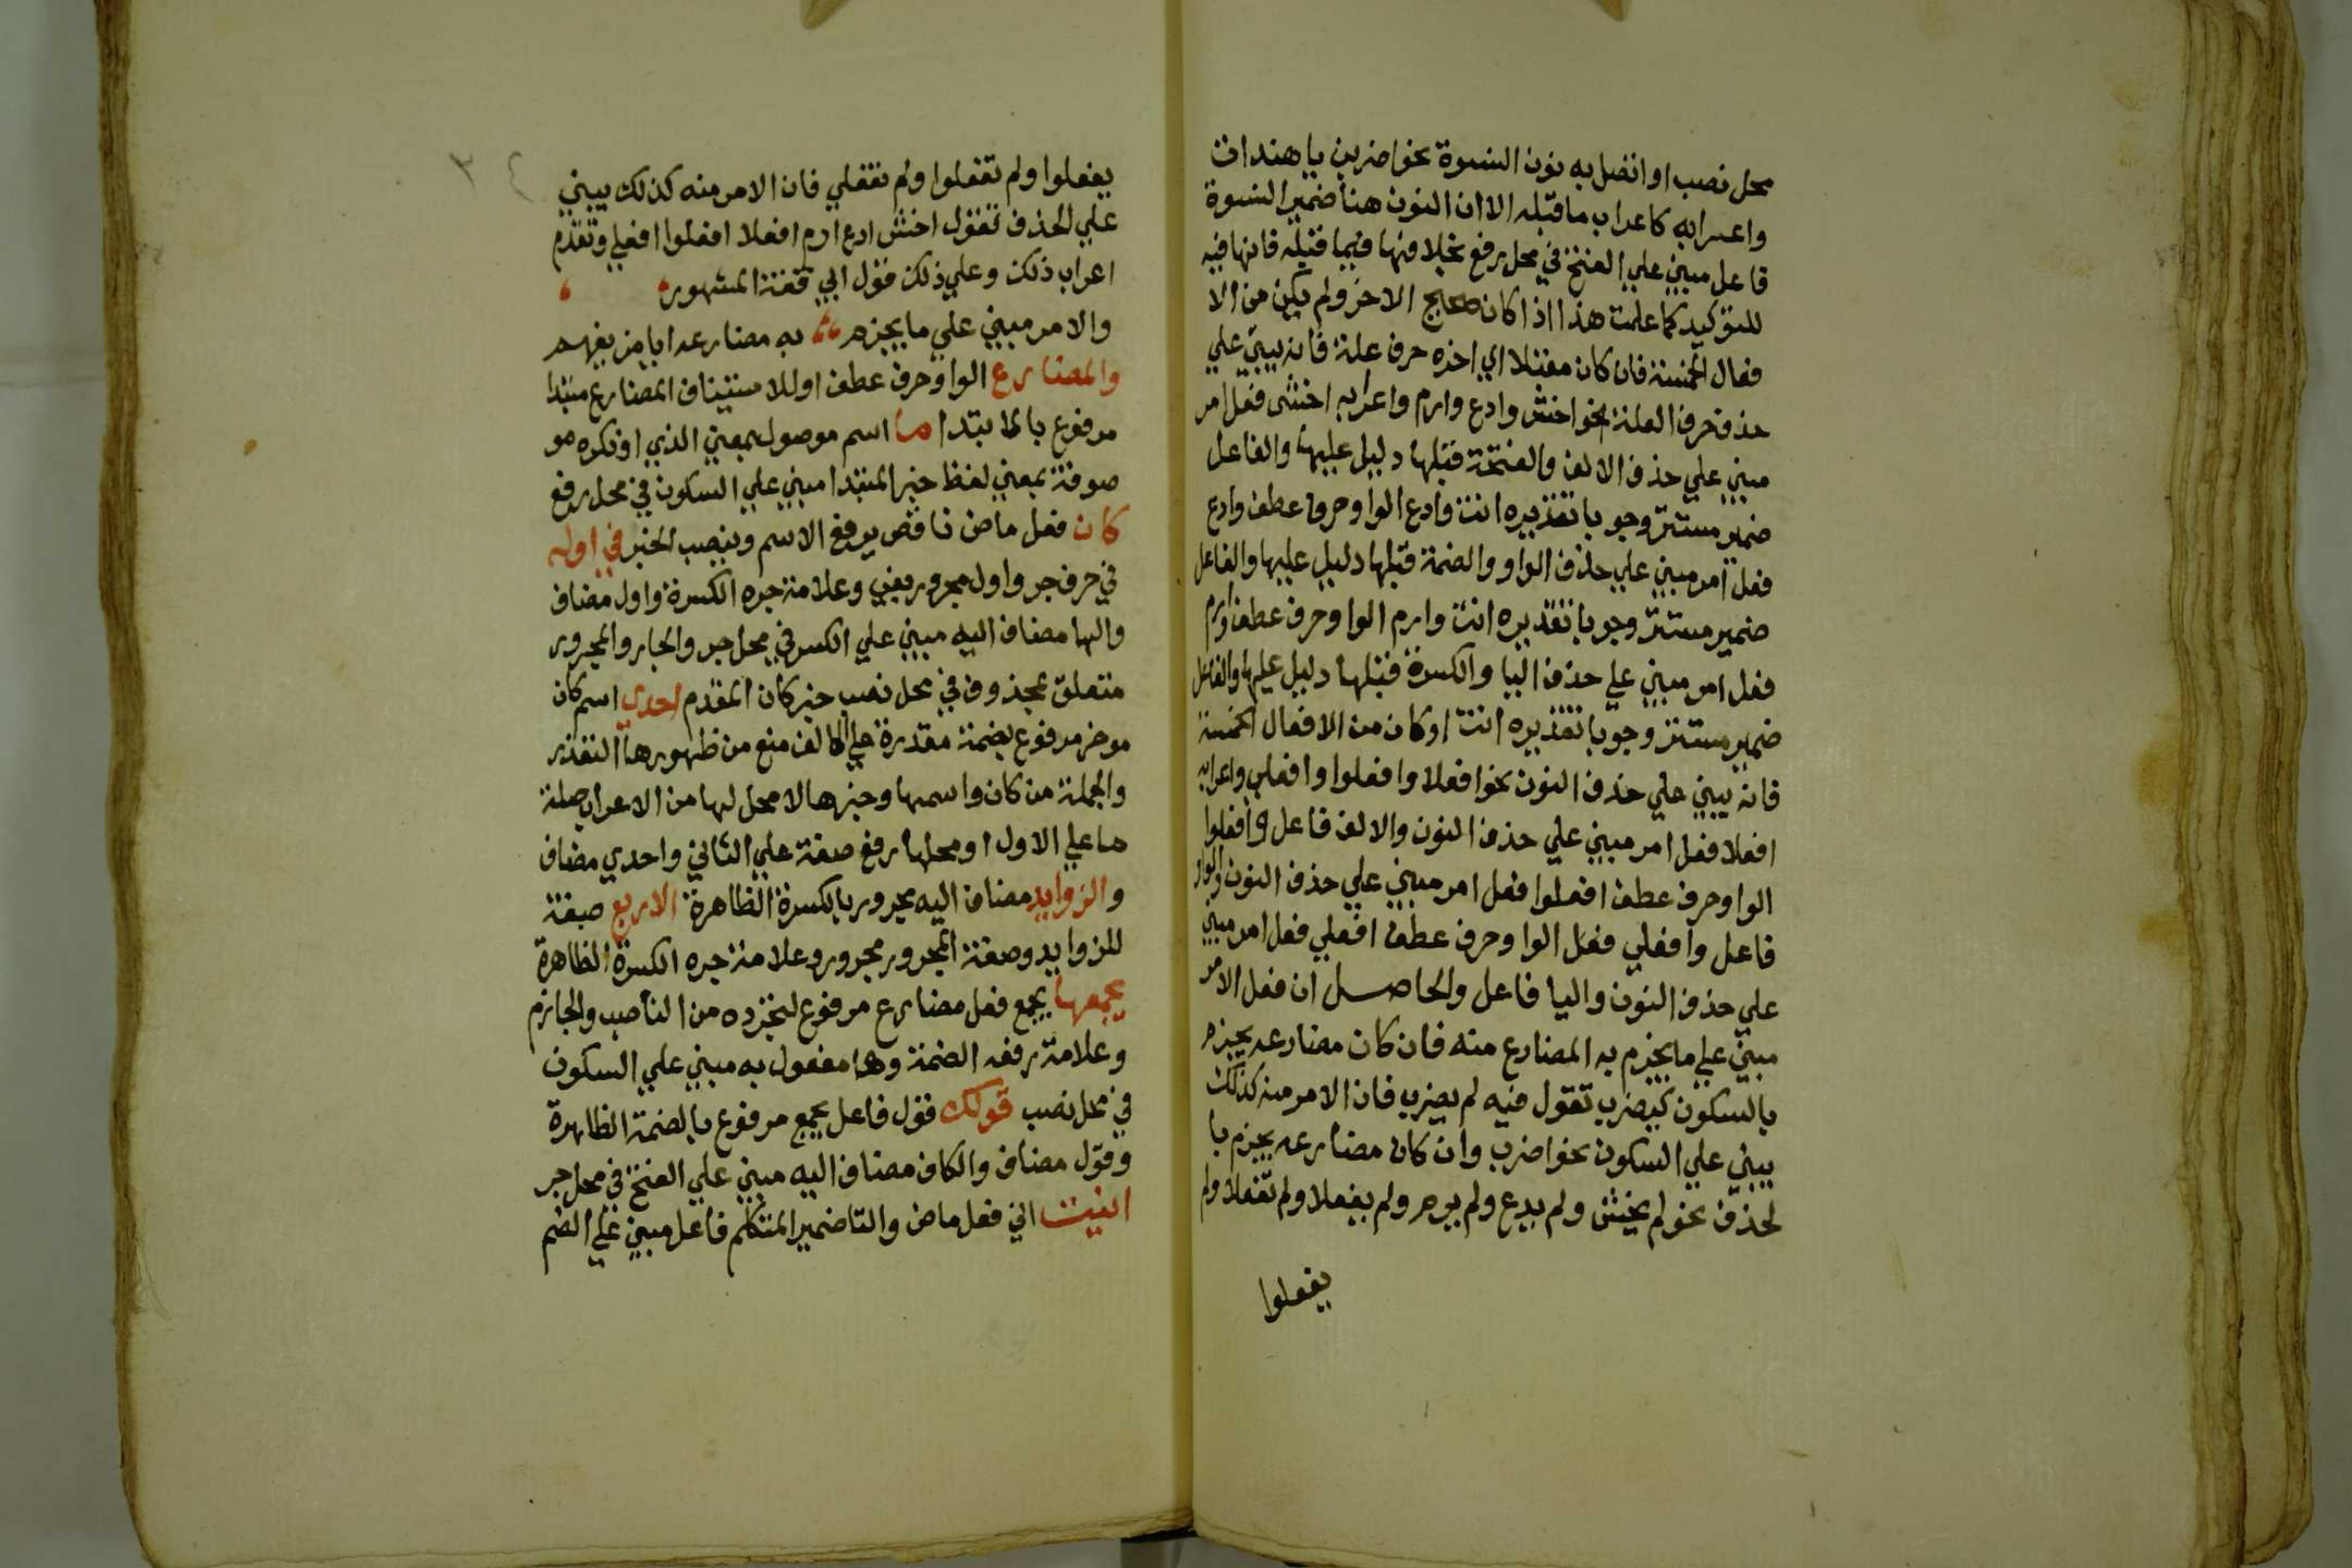 محل نصب او اتصل به نون النسوة نحو اضربن يا هندات
واعرابه كاعراب ما قبله الا ان النون هنا ضمير النسوة
فاعل مبني علي الفتح في محل رفع بخلافها فيما قبله فانها فيه
للتوكيد كما علمت هذا اذا كان صحيح الاخر ولم يكن من الا
فعال الخمسة فان كان معتلا اي اخره حرف علة فانه يبني علي
حذف حرف العلة نحو اخش وادع وارم واعرابه اخشى فعل امر
مبني علي حذف الالف والفتحة قبلها دليل عليها والفاعل
ضمير مستتر وجوبا تقديره انت وادع الواو حرف عطف وادع
فعل امر مبني علي حذف الواو والضمة قبلها دليل عليها والفاعل
ضمير مستتر وجوبا تقديره انت وارم الواو حرف عطف وارم
فعل امر مبني علي حذف اليا والكسرة قبلها دليل عليها والفاعل
ضمير مستتر وجوبا تقديره انت او كان من الافعال الخمسة
فانه يبني علي حذف النون نحو افعلا وافعلوا وافعلي واعرابه
افعلا فعل امر مبني علي حذف النون والالف فاعل وافعلوا
الواو حرف عطف افعلوا فعل امر مبني علي حذف النون والواو
فاعل وافعلي فعل الواو حرف عطف افعلي فعل امر مبني
علي حذف النون واليا فاعل والحاصل ان فعل الامر
مبني علي ما يجزم به المضارع منه فان كان مضارعه يجزم
بالسكون كيضرب تقول فيه لم يضرب فان الامر منه كذلك
يبني علي السكون نحو اضرب وان كان مضارعه يجزم با
لحذف نحو لم يخش ولم يدع ولم يرم ولم يفعلا ولم تفعلا ولم
يفعلوا
٣٤
يفعلوا ولم تفعلوا ولم تفعلي فان الامر منه كذلك يبني
علي الحذف تقول اخش ادع ارم افعلا افعلوا افعلي وتقدم
اعراب ذلك وعلي ذلك قول ابي قفة المشهور
والامر مبني علي ما يجزم به مضارعه ايا من يفهم
والمضارع الواو حرف عطف او للاستيناف المضارع مبتدا
مرفوع بالابتدا ما اسم موصول بمعني الذي او نكره مو
صوفة بمعني لفظ خبر المبتدا مبني علي السكون في محل رفع
كان فعل ماض ناقص يرفع الاسم وينصب الخبر في اوله
في حرف جر واول مجرور بفي وعلامة جره الكسرة واول مضاف
والها مضاف اليه مبني علي الكسر في محل جر والجار والمجرور
متعلق بمحذوف في محل نصب خبر كان المقدم احدي اسم كان
موخر مرفوع بضمة مقدرة علي الالف منع من ظهورها التعذر
والجملة من كان واسمها وخبرها لا محل لها من الاعراب صلة
ما علي الاول او محلها رفع صفة علي الثاني واحدي مضاف
والزوايد مضاف اليه مجرور بالكسرة الظاهرة الاربع صفة
للزوايد وصفة المجرور مجرور وعلامة جره الكسرة الظاهرة
يجمعها يجمع فعل مضارع مرفوع لتجرده من الناصب والجازم
وعلامة رفعه الضمة وها مفعول به مبني علي السكون
في محل نصب قولك قول فاعل يجمع مرفوع بالضمة الظاهرة
وقول مضاف والكاف مضاف اليه مبني علي الفتح في محل جر
انيت اني فعل ماض والتا ضمير المتكلم فاعل مبني علي الضم